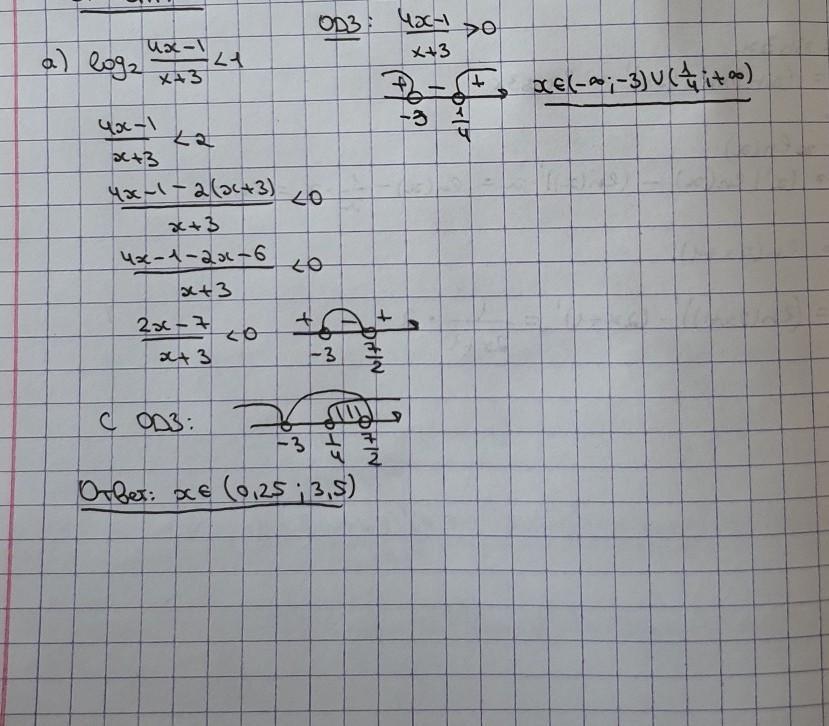 ОДЗ: (4x-1)/(x+3) > 0
а) log₂ (4x-1)/(x+3) < 1
+ - +
-3 1/4
x∈(-∞;-3)∪(1/4;+∞)
(4x-1)/(x+3) < 2
(4x-1-2(x+3))/(x+3) < 0
(4x-1-2x-6)/(x+3) < 0
(2x-7)/(x+3) < 0
+ - +
-3 7/2
С ОДЗ:
-3 1/4 7/2
Ответ: x∈ (0,25 ; 3,5)